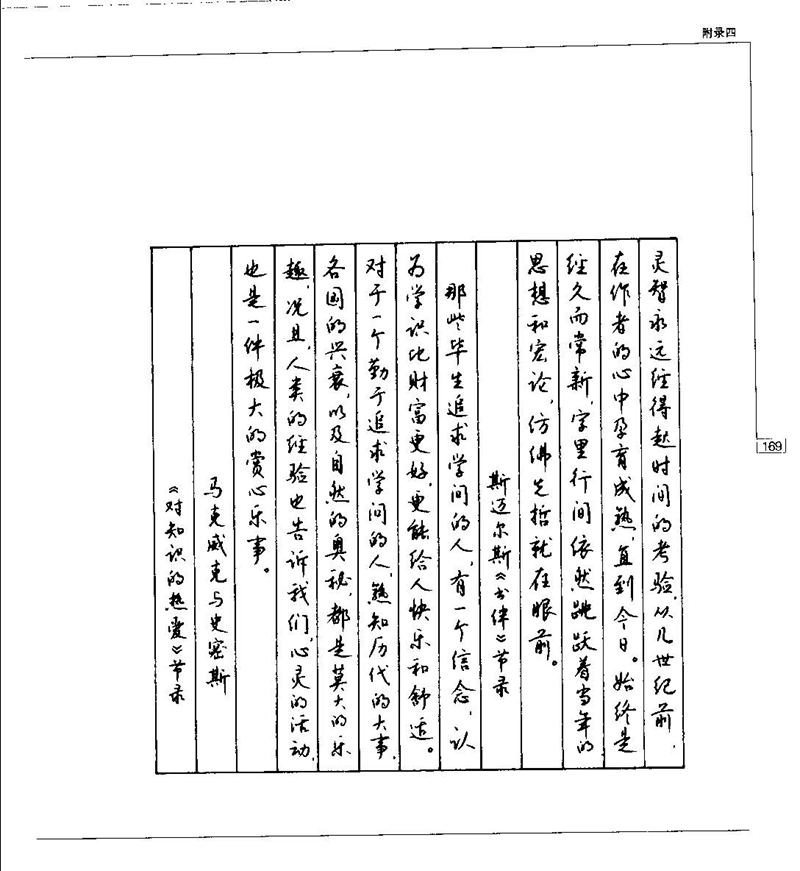 附录四
灵智永远经得起时间的考验，从几世纪前，
在作者的心中孕育成熟，直到今日。始终是
经久而常新，字里行间依然跳跃着当年的
思想和宏论，仿佛先哲就在眼前。
斯迈尔斯《书伴》节录
那些毕生追求学问的人，有一个信念，认
为学识比财富更好，更能给人快乐和舒适。
对于一个勤于追求学问的人，熟知历代的大事，
各国的兴衰，以及自然的奥秘，都是莫大的乐
趣，况且，人类的经验也告诉我们，心灵的活动，
也是一件极大的赏心乐事。
马克威克与史密斯
《对知识的热爱》节录
169